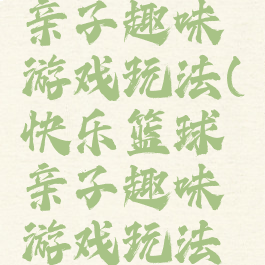 亲子趣味
游戏玩法(
快乐篮球
亲子趣味
游戏玩法